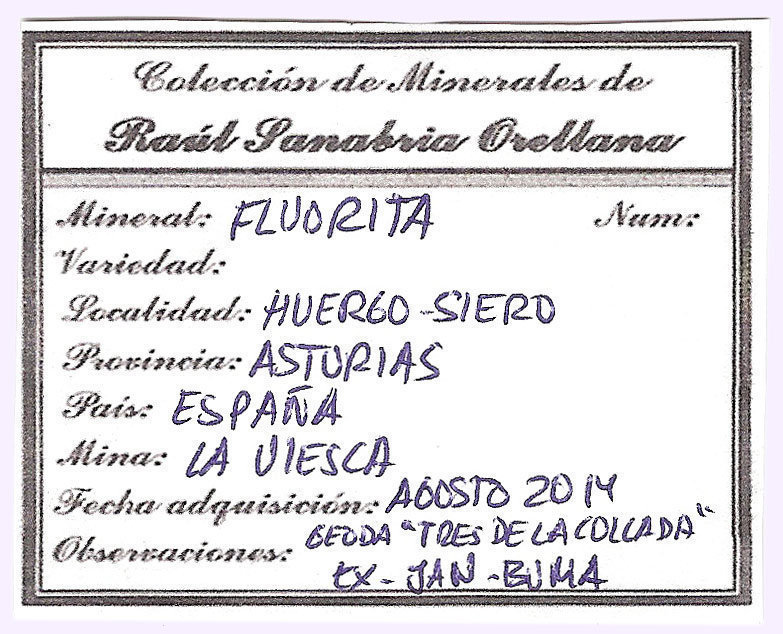 Colección de Minerales de
Raúl Sanabria Orellana
Mineral: FLUORITA Num:
Variedad:
Localidad: HUERGO-SIERO
Provincia: ASTURIAS
País: ESPAÑA
Mina: LA VIESCA
Fecha adquisición: AGOSTO 2014
Observaciones: GEODA "TRES DE LA COLLADA"
EX-JAN-BUMA